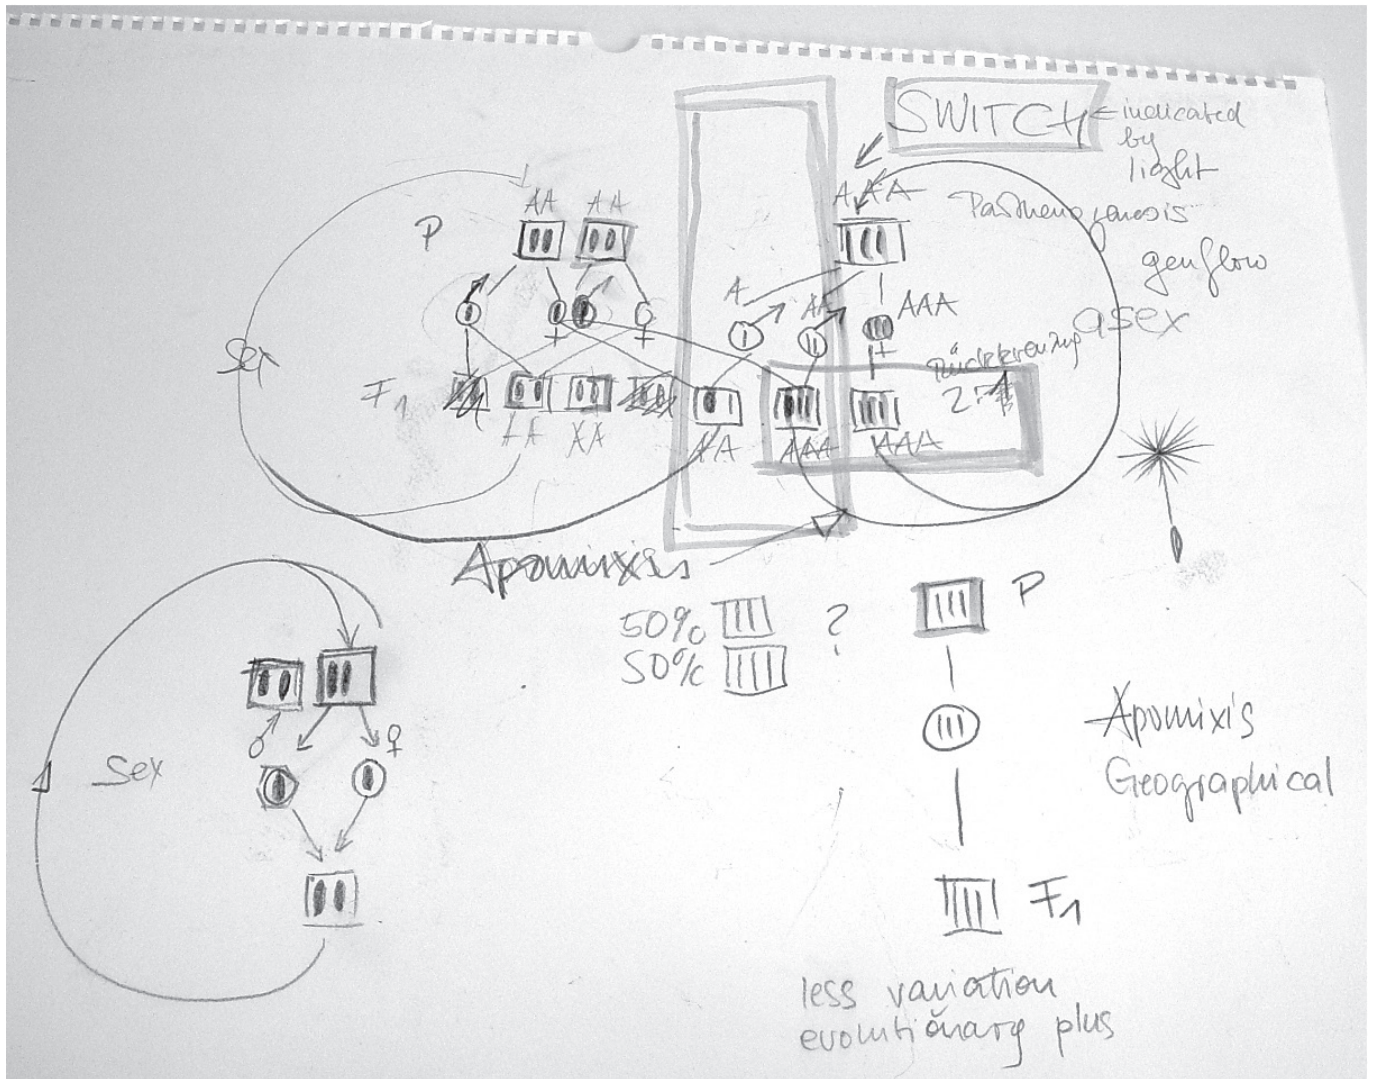 SWITCH
indicated
by
light
AA AA
AAA
P
Parthenogenesis
genflow
A
AA
AAA
asex
Sex
Rückkreuzung
F1
2:1
AA
AA
AA
AAA
AAA
Apomixis
50%
50%
?
P
♂
♀
Sex
Apomixis
Geographical
F1
less variation
evolutionary plus